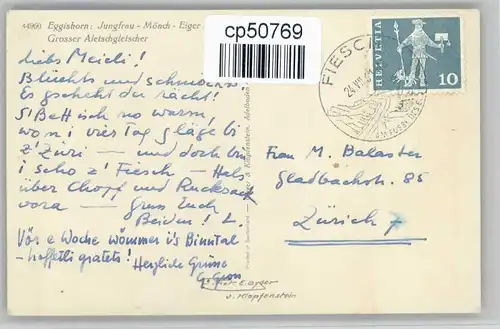 44960 Eggishorn: Jungfrau - Mönch - Eiger
Grosser Aletschgletscher
cp50769
FIESCH
HELVETIA
10
liebs Meieli!
Blüehts und
Es gscheht der rächt!
S'Bett isch no warm,
wo ni vier Tag gläge bi
z'Züri — und doch bi
i scho z'Fiesch — Hals
über Chopf und Rucksack
vora — Gruss Euch
Beiden!
Vor e Woche wömmer i's Binntal
- hoffetli gratets! Herzliche Grüsse
Frau M. Balaster
Gladbachstr. 85
Zürich 7
v. Klopfenstein